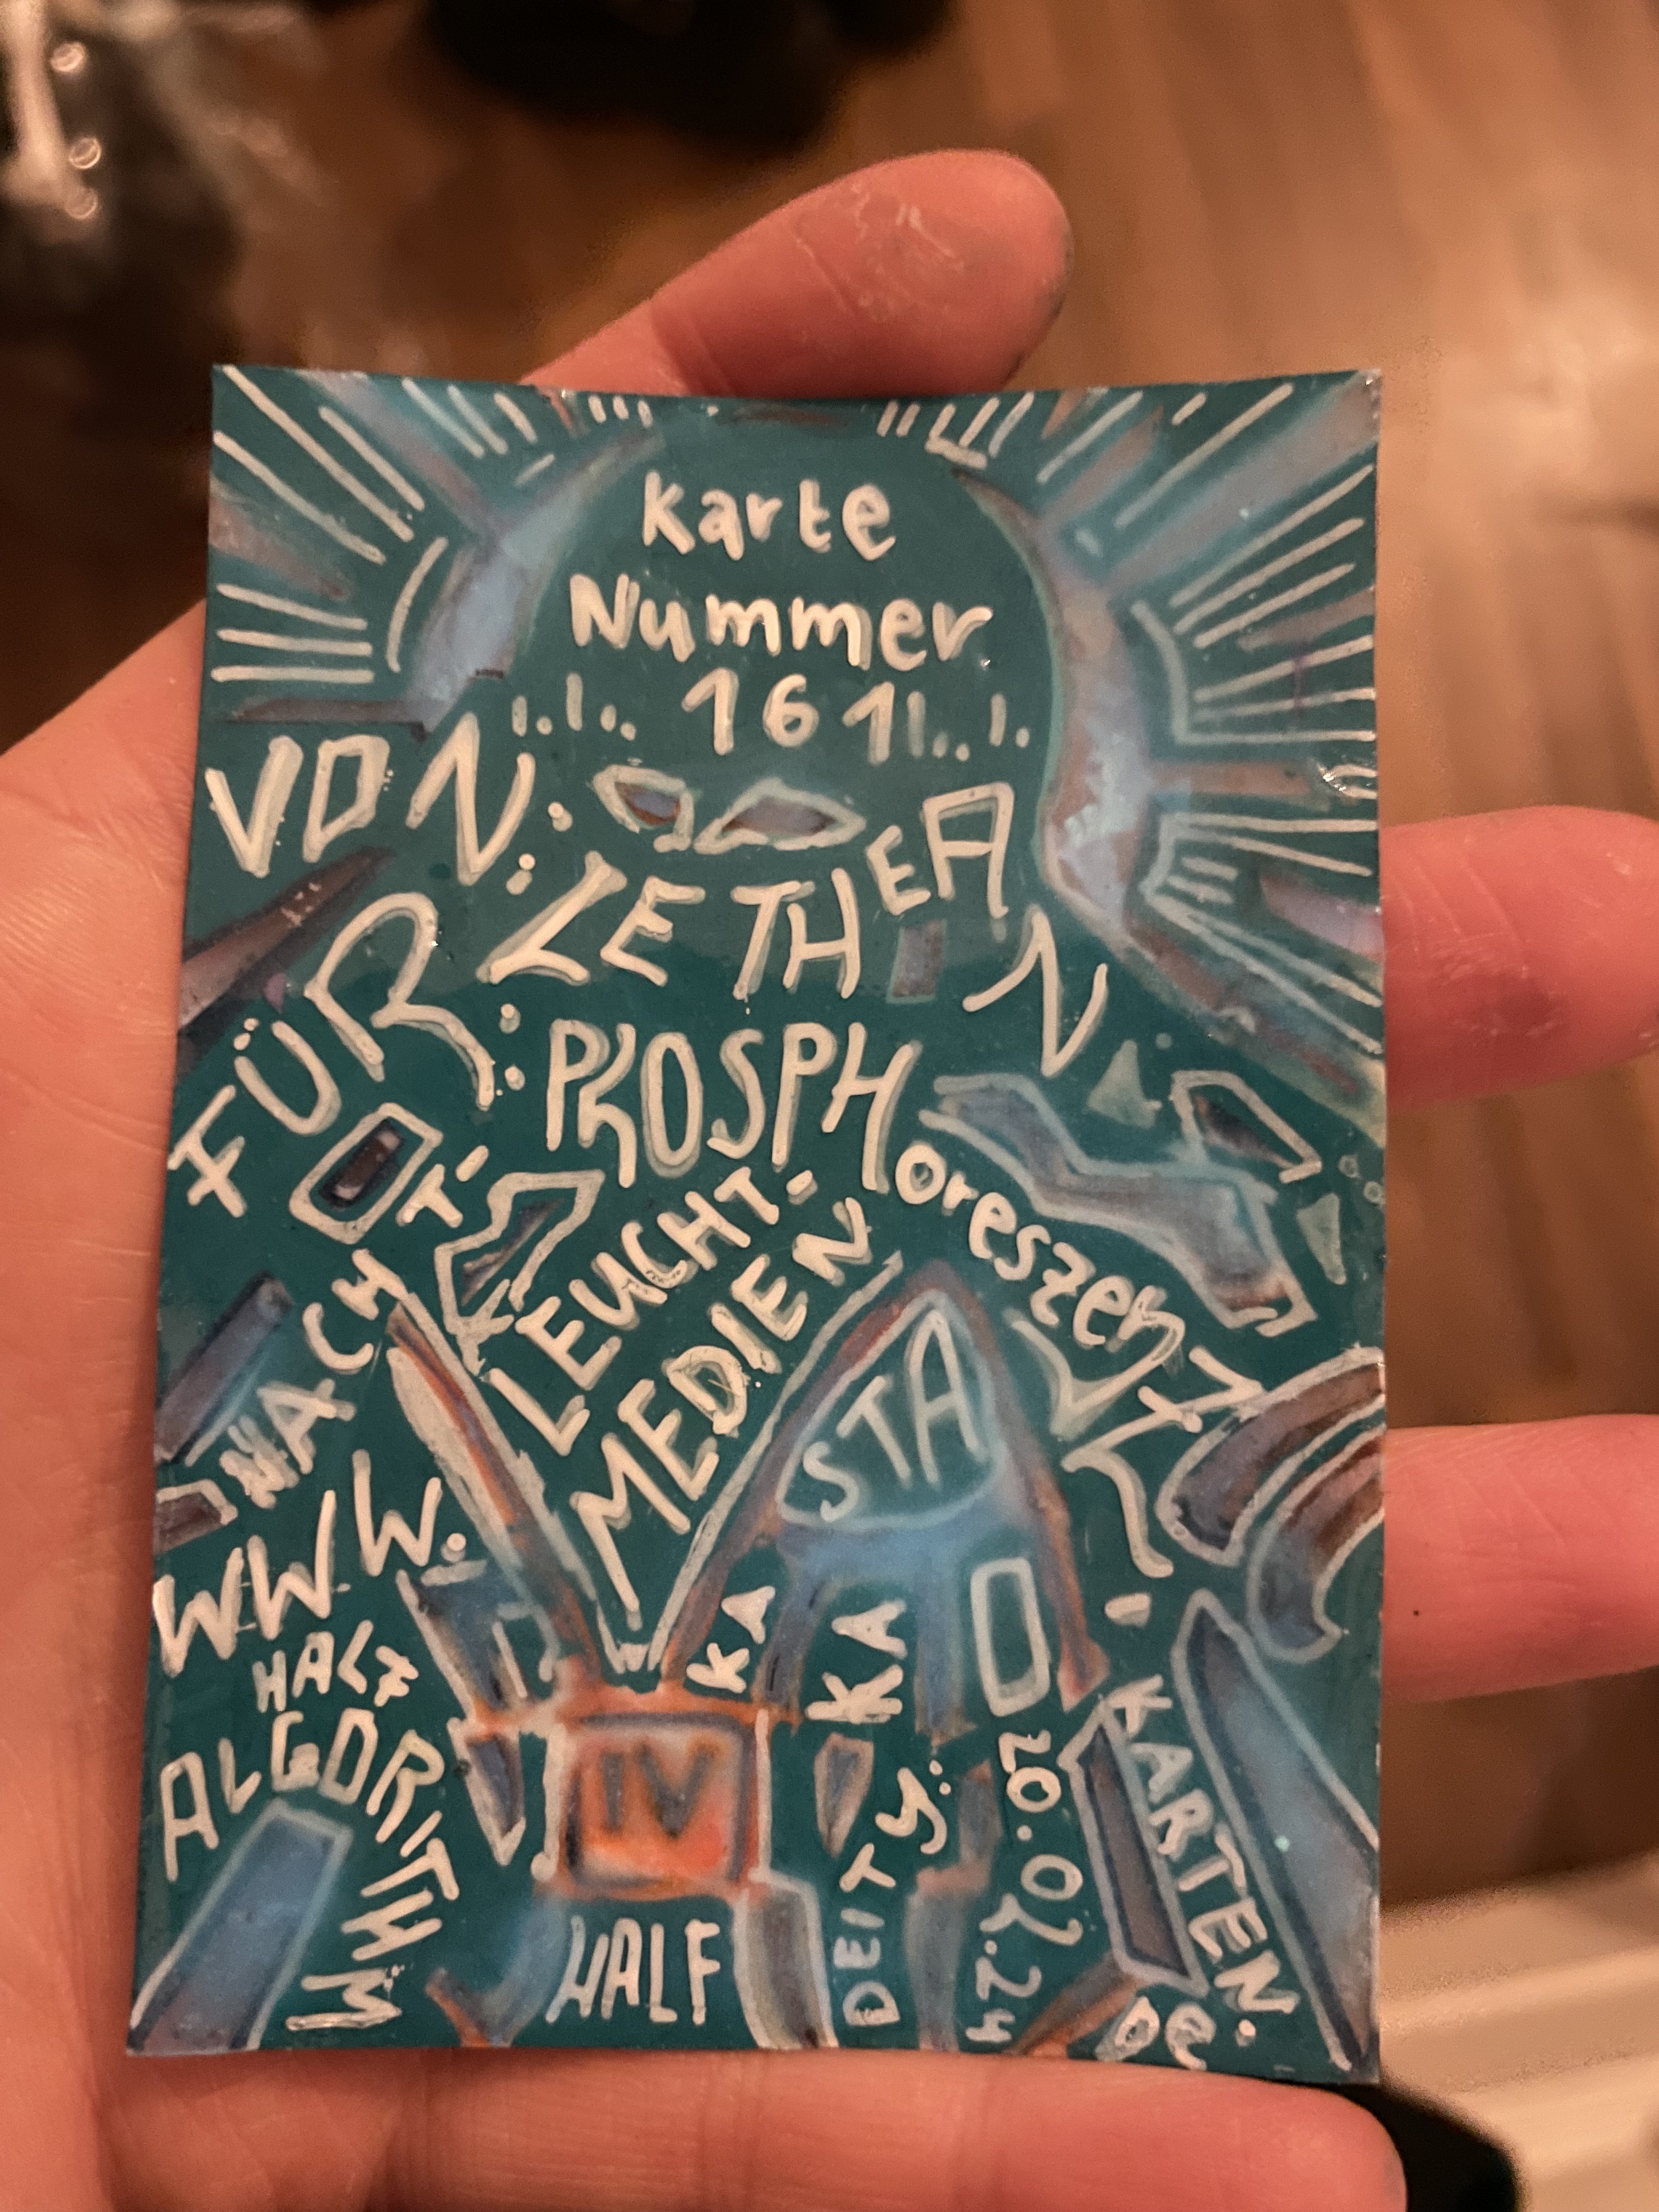 Karte
Nummer
161
VON:
LETHEAN
FÜR:
PHOSPHoreszenz
NACHT-
LEUCHT-
MEDIEN
STA
WWW.
HALF
ALGORITHM
KA
KA
KARTEN.
DE
IV
HALF
DEITY:
20.02.24